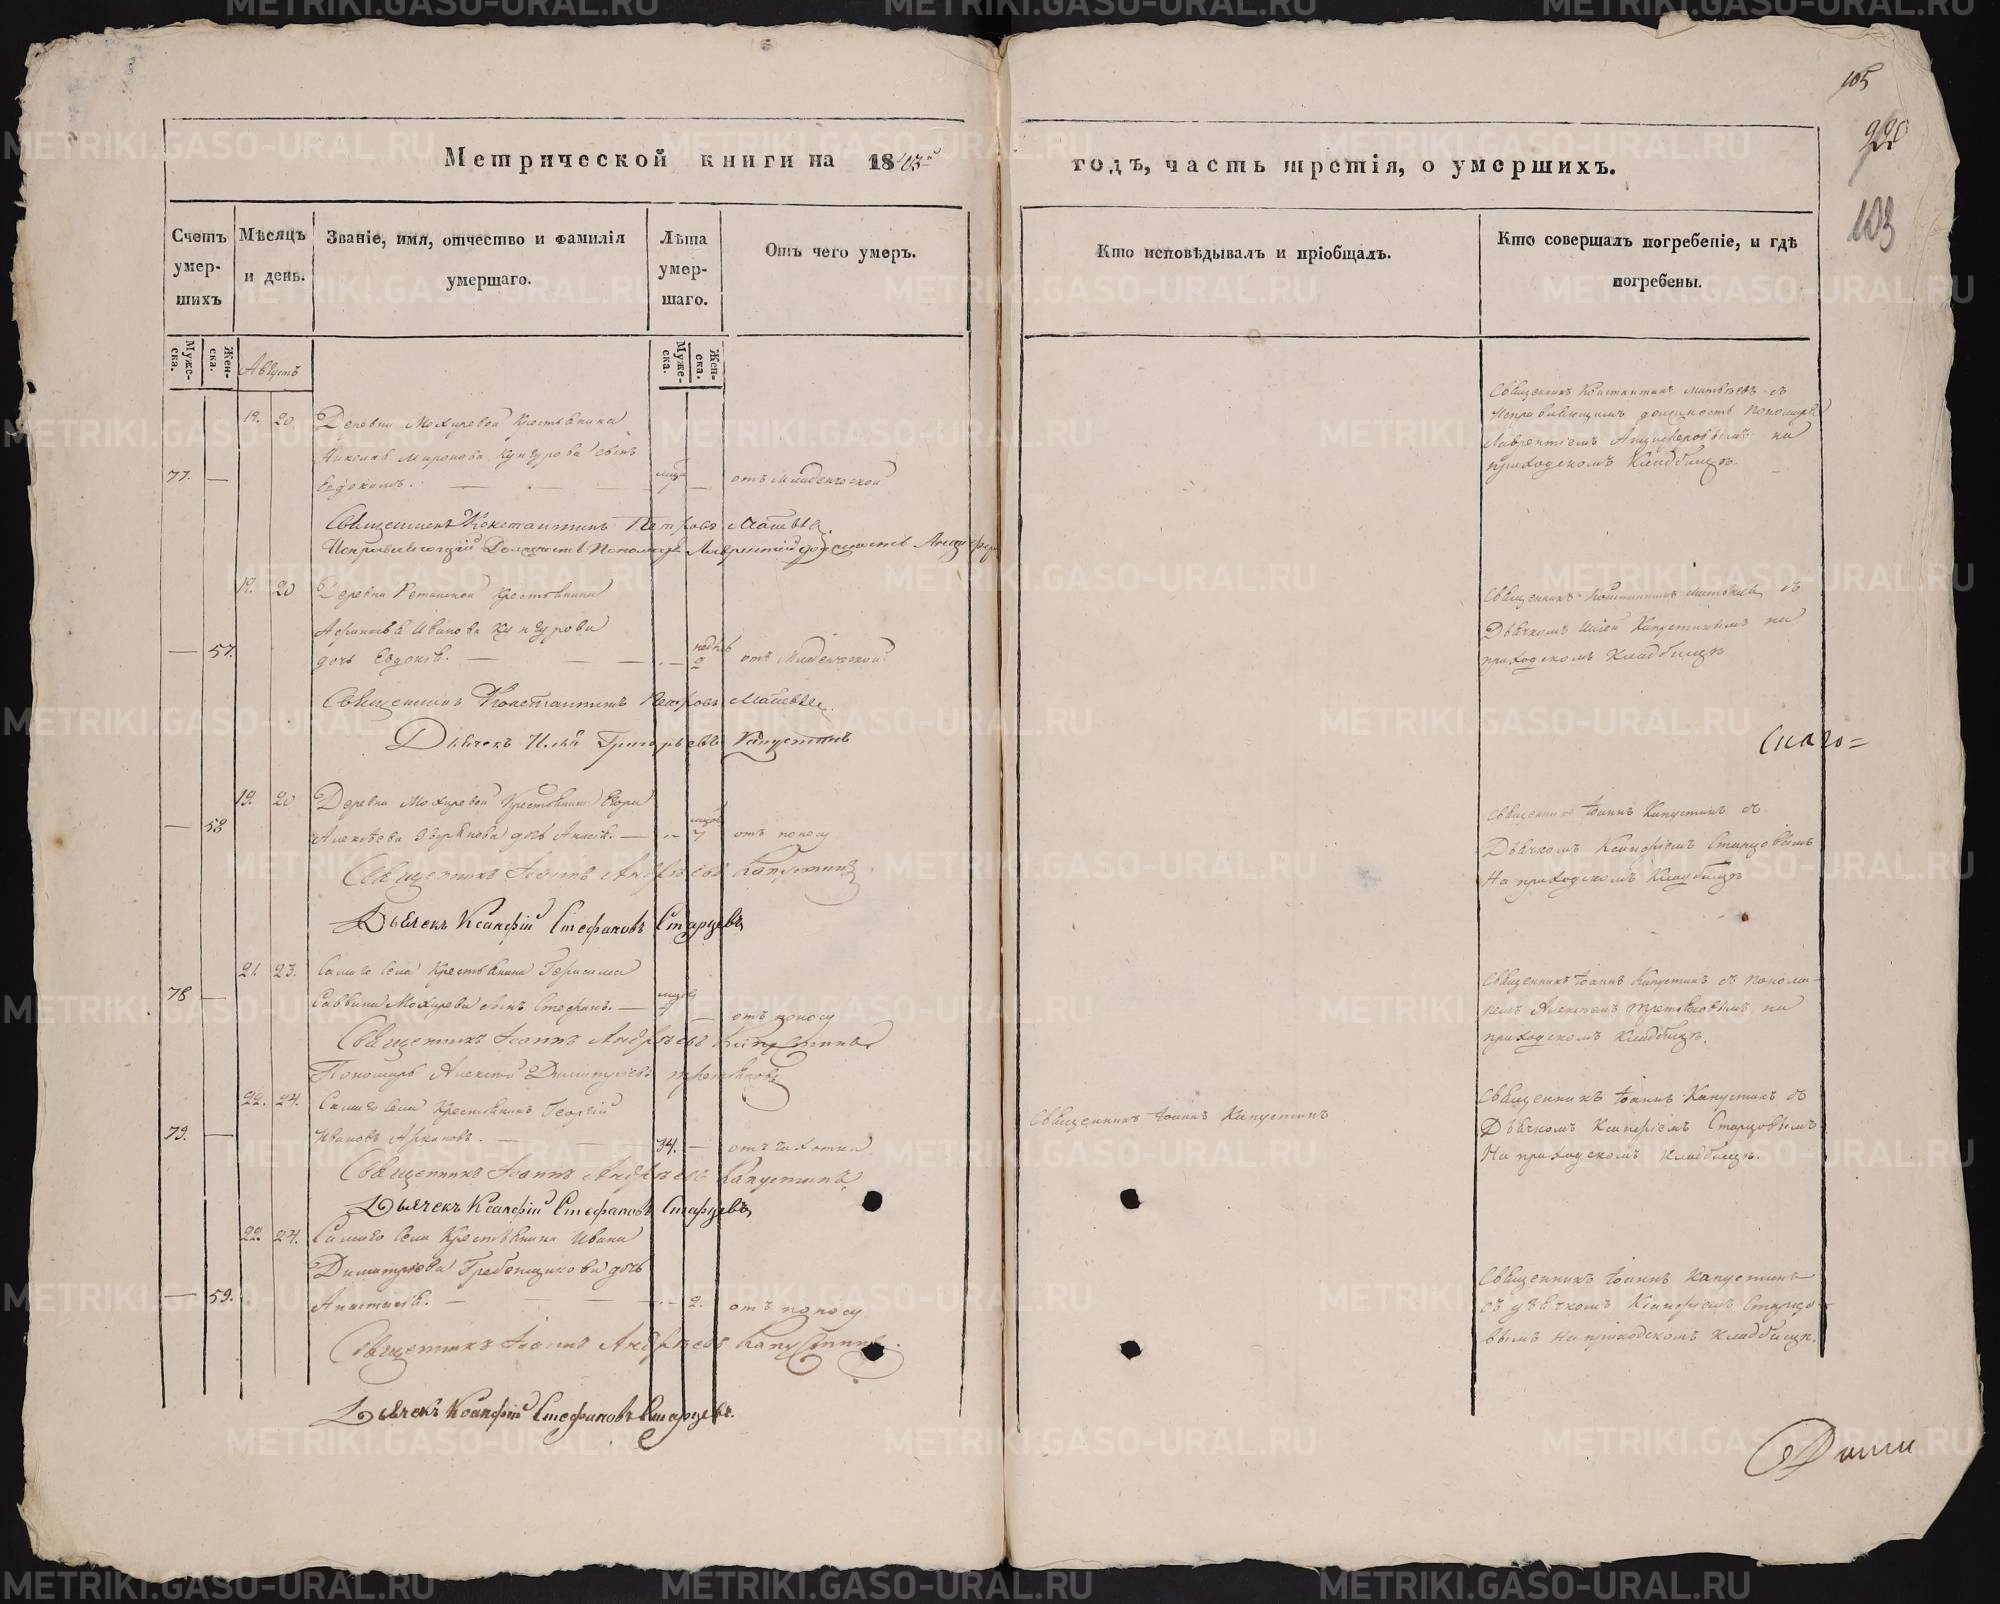 105
220
103
Метрической книги на 1843й
годъ, часть третія, о умершихъ.
Счетъ умер-шихъ
Мѣсяцъ и день.
Званіе, имя, отчество и фамилія умершаго.
Лѣта умер-шаго.
Отъ чего умеръ.
Кто исповѣдывалъ и пріобщалъ.
Кто совершалъ погребеніе, и гдѣ погребены.
Муже-ска.
Жен-ска.
Августъ
Муже-ска.
Жен-ска.
19. 20 Деревни Мохиревой крестьянина
Николая Миронова Кунгурова сынъ
77. — Евдокимъ. — отъ младенческой
Священникъ Константинъ Матвѣевъ съ
Исправляющимъ должность Пономаря
Лаврентіемъ на
приходскомъ кладбищѣ.
Священникъ Константинъ Петровъ Матвѣевъ
Исправляющій Должность Пономаря Лаврентій
19. 20 Деревни крестьянина
Ивanова Кунгурова
— 57. дочь Евдокія. — 2 отъ младенческой
Священникъ Константинъ съ
Дьячкомъ Иліей Капустинымъ на
приходскомъ кладбищѣ
Священникъ Константинъ Петровъ Матвѣевъ
Дьячекъ Илья Григорьевъ Капустинъ
Сказо=
19. 20 Деревни Мохиревой крестьянина Егора
— 58 Алексѣева дочь — 7 отъ поносу
Священникъ Іоаннъ Капустинъ съ
Дьячкомъ Ксанфіемъ Старцовымъ
На приходскомъ кладбищѣ
Священникъ Іоаннъ Андреевъ Капустинъ
Дьячекъ Ксанфій Стефановъ Старцевъ
21. 23. Самаго села крестьянина Герасима
78 — Саввина Мохирева сынъ Стефанъ. — отъ поносу
Священникъ Іоаннъ Капустинъ съ понома-
ремъ Алексѣемъ Третьяковымъ на
приходскомъ кладбищѣ.
Священникъ Іоаннъ Андреевъ Капустинъ
Пономарь Алексѣй Димитріевъ Третьяковъ
22. 24. Самаго села крестьянинъ Георгій
79. — Ивановъ — 34. — отъ чахотки
Священникъ Іоаннъ Капустинъ
Священникъ Іоаннъ Капустинъ съ
Дьячкомъ Ксанфіемъ Старцовымъ
На приходскомъ кладбищѣ.
Священникъ Іоаннъ Андреевъ Капустинъ
Дьячекъ Ксанфій Стефановъ Старцевъ
22. 24. Самаго села крестьянина Ивана
Димитріева Гребенщикова дочь
— 59. Анастасія. — 2. отъ поносу
Священникъ Іоаннъ Капустинъ
съ дьячкомъ Ксанфіемъ Старцо-
вымъ на приходскомъ кладбищѣ.
Священникъ Іоаннъ Андреевъ Капустинъ.
Дьячекъ Ксанфій Стефановъ Старцевъ.
METRIKI.GASO-URAL.RU